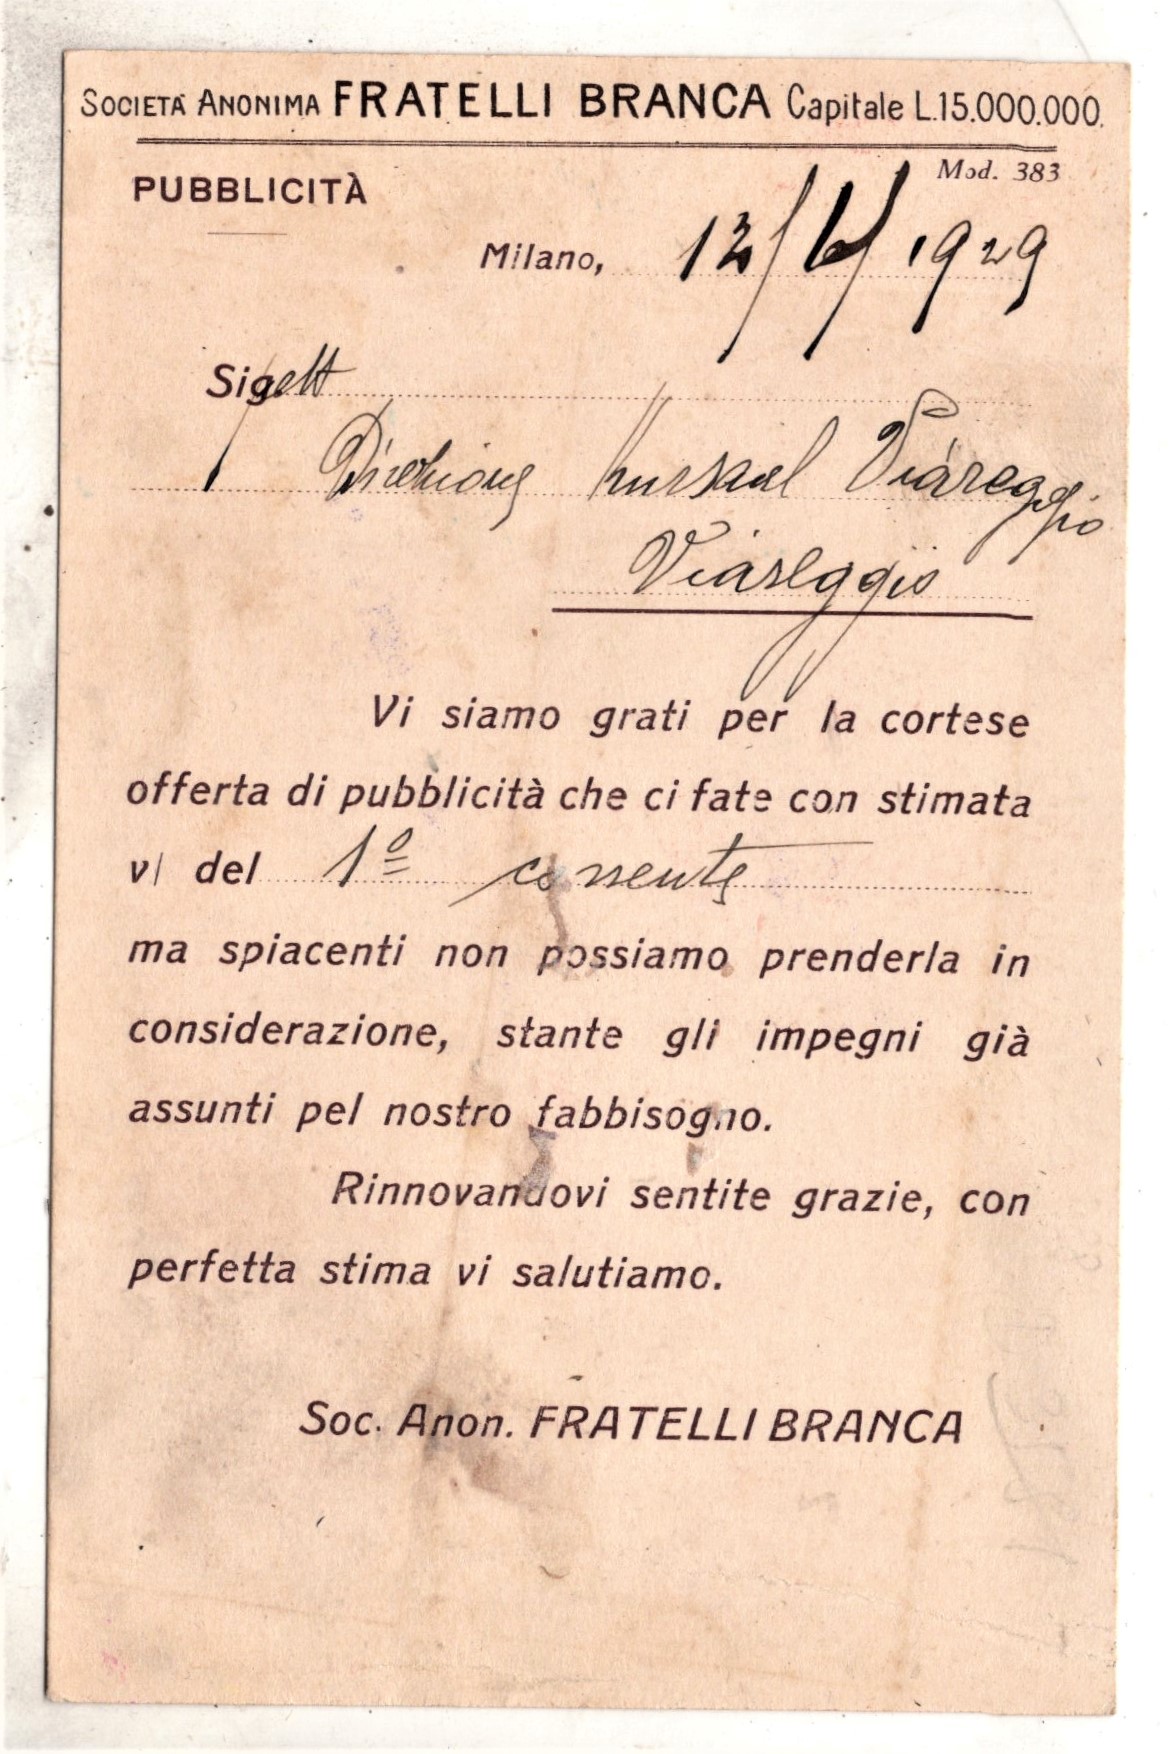 SOCIETÀ ANONIMA FRATELLI BRANCA Capitale L.15.000.000.
Mod. 383
PUBBLICITÀ
Milano, 12/6/1929
Sig
Direzione Kursaal Viareggio
Viareggio
Vi siamo grati per la cortese
offerta di pubblicità che ci fate con stimata
vi del 1º corrente
ma spiacenti non possiamo prenderla in
considerazione, stante gli impegni già
assunti pel nostro fabbisogno.
Rinnovandovi sentite grazie, con
perfetta stima vi salutiamo.
Soc. Anon. FRATELLI BRANCA